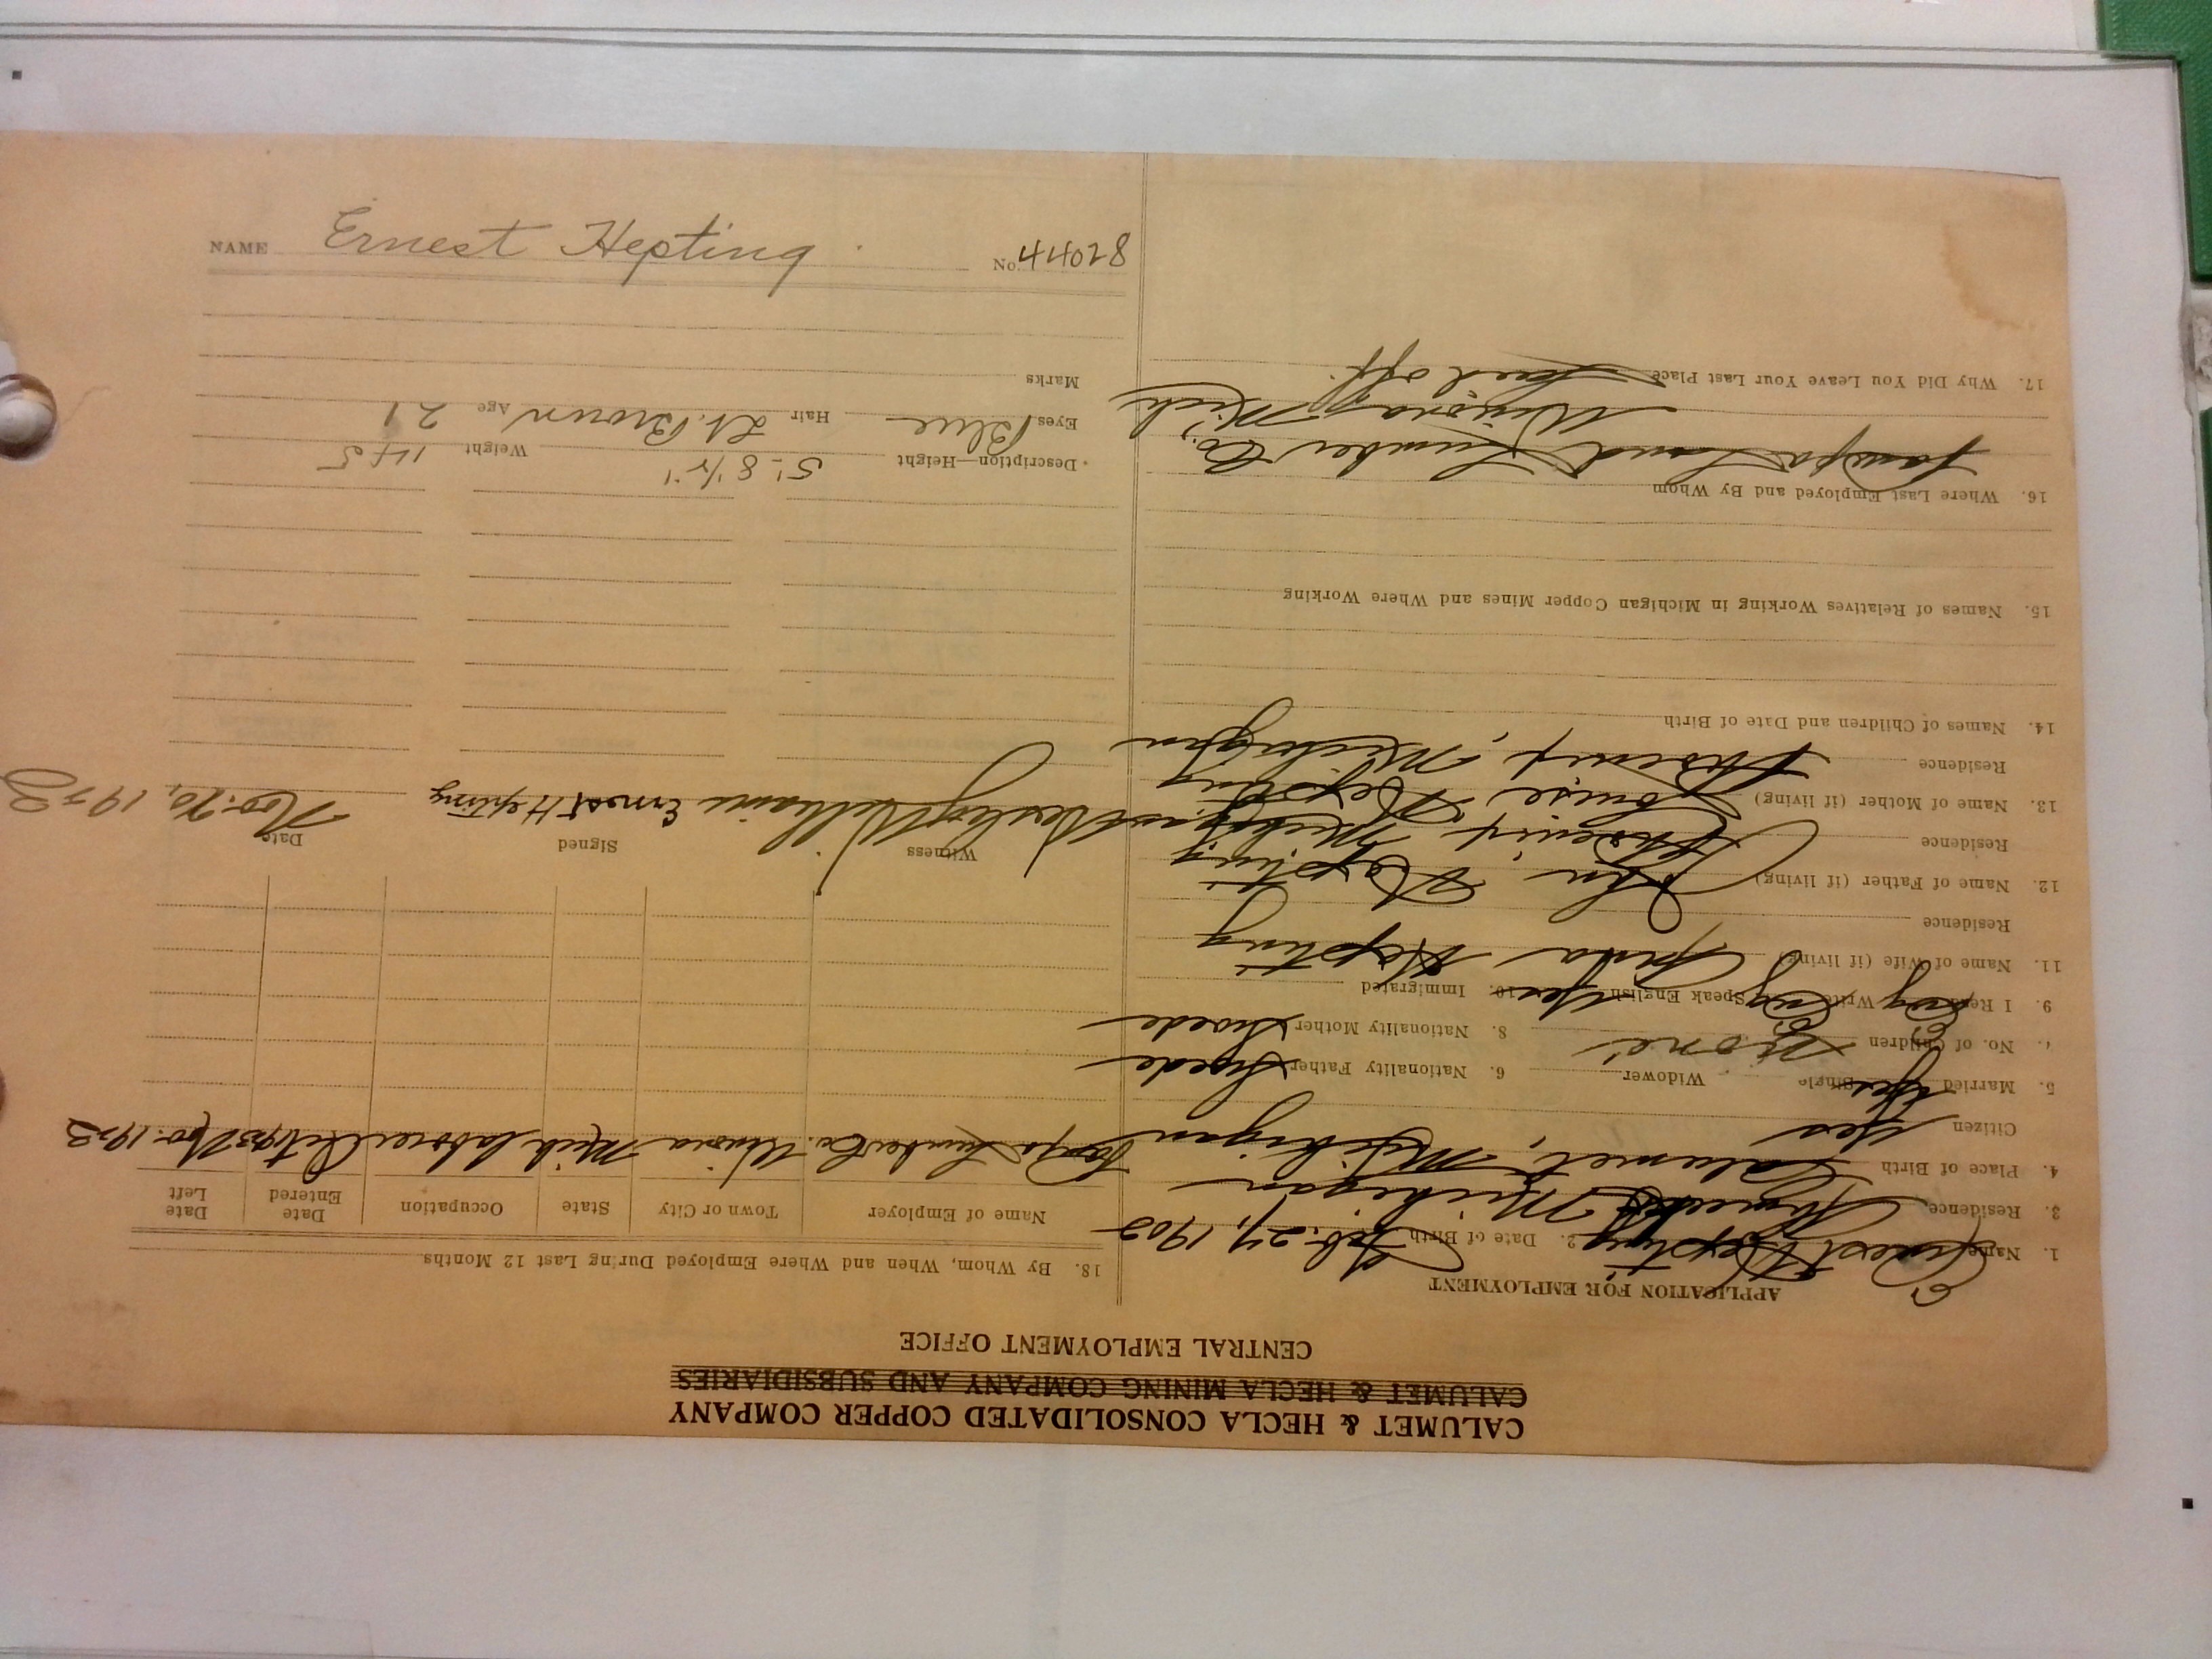 NAME Ernest Hepting No. 44028
CALUMET & HECLA CONSOLIDATED COPPER COMPANY
CALUMET & HECLA MINING COMPANY AND SUBSIDIARIES
CENTRAL EMPLOYMENT OFFICE
APPLICATION FOR EMPLOYMENT
1. Name Ernest Hepting 2. Date of Birth Feb. 27, 1902
3. Residence Ahmeek, Michigan
4. Place of Birth Calumet, Michigan
Citizen yes
5. Married yes Single Widower 6. Nationality Father Swede
7. No. of Children None 8. Nationality Mother Swede
9. I Read Eng Write Eng Speak English Yes 10. Immigrated
11. Name of Wife (if living) Hepting
Residence
12. Name of Father (if living) John Hepting
Residence Phoenix, Michigan
13. Name of Mother (if living) Louise Hepting
Residence Phoenix, Michigan
14. Names of Children and Date of Birth
15. Names of Relatives Working in Michigan Copper Mines and Where Working
16. Where Last Employed and By Whom
Land & Lumber Co.,
Winona, Mich
17. Why Did You Leave Your Last Place Laid off.
18. By Whom, When and Where Employed During Last 12 Months
Name of Employer Town or City State Occupation Date Entered Date Left
Lumber Co. Winona Mich laborer Oct 1923 Nov. 1923
Witness Signed Date
Wesley Williams Ernest Hepting Nov. 20, 1923
Description—Height 5' 8 1/2" Weight 145
Eyes Blue Hair Lt. Brown Age 21
Marks